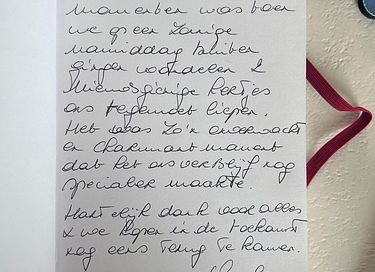 was toen
we op een zonnige
namiddag
gingen wandelen &
nieuwsgierige
ons tegemoet liepen.
Het was zo'n onverwacht
en charmant moment
dat het ons verblijf nog
specialer maakte.
Hartelijk dank voor alles
& we hopen in de toekomst
nog eens terug te komen.